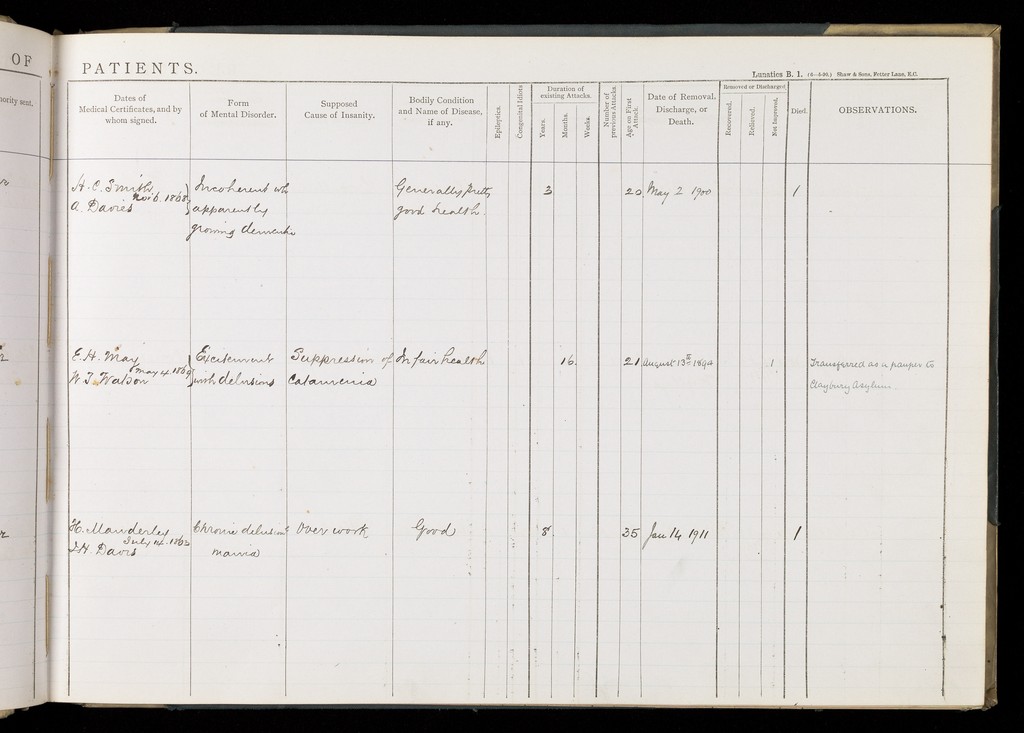 OF
PATIENTS.
Lunatics B. 1. (6—5-90.) Shaw & Sons, Fetter Lane, E.C.
hority sent.
Dates of
Medical Certificates, and by
whom signed.
Form
of Mental Disorder.
Supposed
Cause of Insanity.
Bodily Condition
and Name of Disease,
if any.
Epileptics.
Congenital Idiots
Duration of
existing Attacks.
Years.
Months.
Weeks.
Number of
previous Attacks.
Age on First
Attack.
Date of Removal,
Discharge, or
Death.
Removed or Discharged.
Recovered.
Relieved.
Not Improved.
Died.
OBSERVATIONS.
H. C. Smith Incoherent Generally pretty 3 20 May 2 1900 1
Nov 6. 1868
A. Davies apparently good health.
growing dementia
E. H. May Excitement Suppression of In fair health 16 21 August 13th 1894 1 Transferred as a pauper to
May 4. 1869
W. T. Watson with delusions Catamenia Claybury Asylum.
H. Manderley Chronic delusions Over work Good 8 35 Jan 14 1911 1
July 14. 1862
J. H. Davis mania